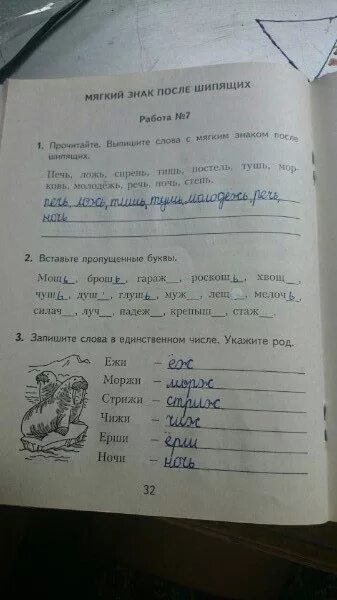 МЯГКИЙ ЗНАК ПОСЛЕ ШИПЯЩИХ
Работа №7
1. Прочитайте. Выпишите слова с мягким знаком после
шипящих.
Печь, ложь, сирень, тишь, постель, тушь, мор-
ковь, молодёжь, речь, ночь, степь.
печь, ложь, тишь, тушь, молодежь, речь,
ночь
2. Вставьте пропущенные буквы.
Мощь, брошь, гараж__, роскошь, хвощ__,
чушь, душ__, глушь, муж__, лещ__, мелочь,
силач__, луч__, падеж__, крепыш__, стаж__.
3. Запишите слова в единственном числе. Укажите род.
Ежи – ёж
Моржи – морж
Стрижи – стриж
Чижи – чиж
Ерши – ёрш
Ночи – ночь
32